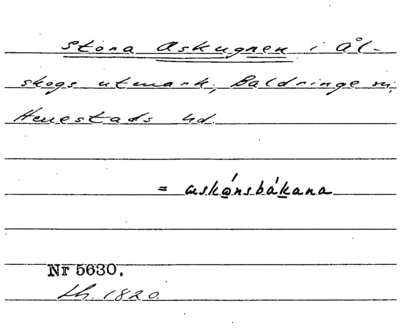 Stora Askugnen i Ål-
skogs utmark, Baldringe sn,
Herrestads hd.
= askánsbákana
Nr 5630.
Lh. 1820.